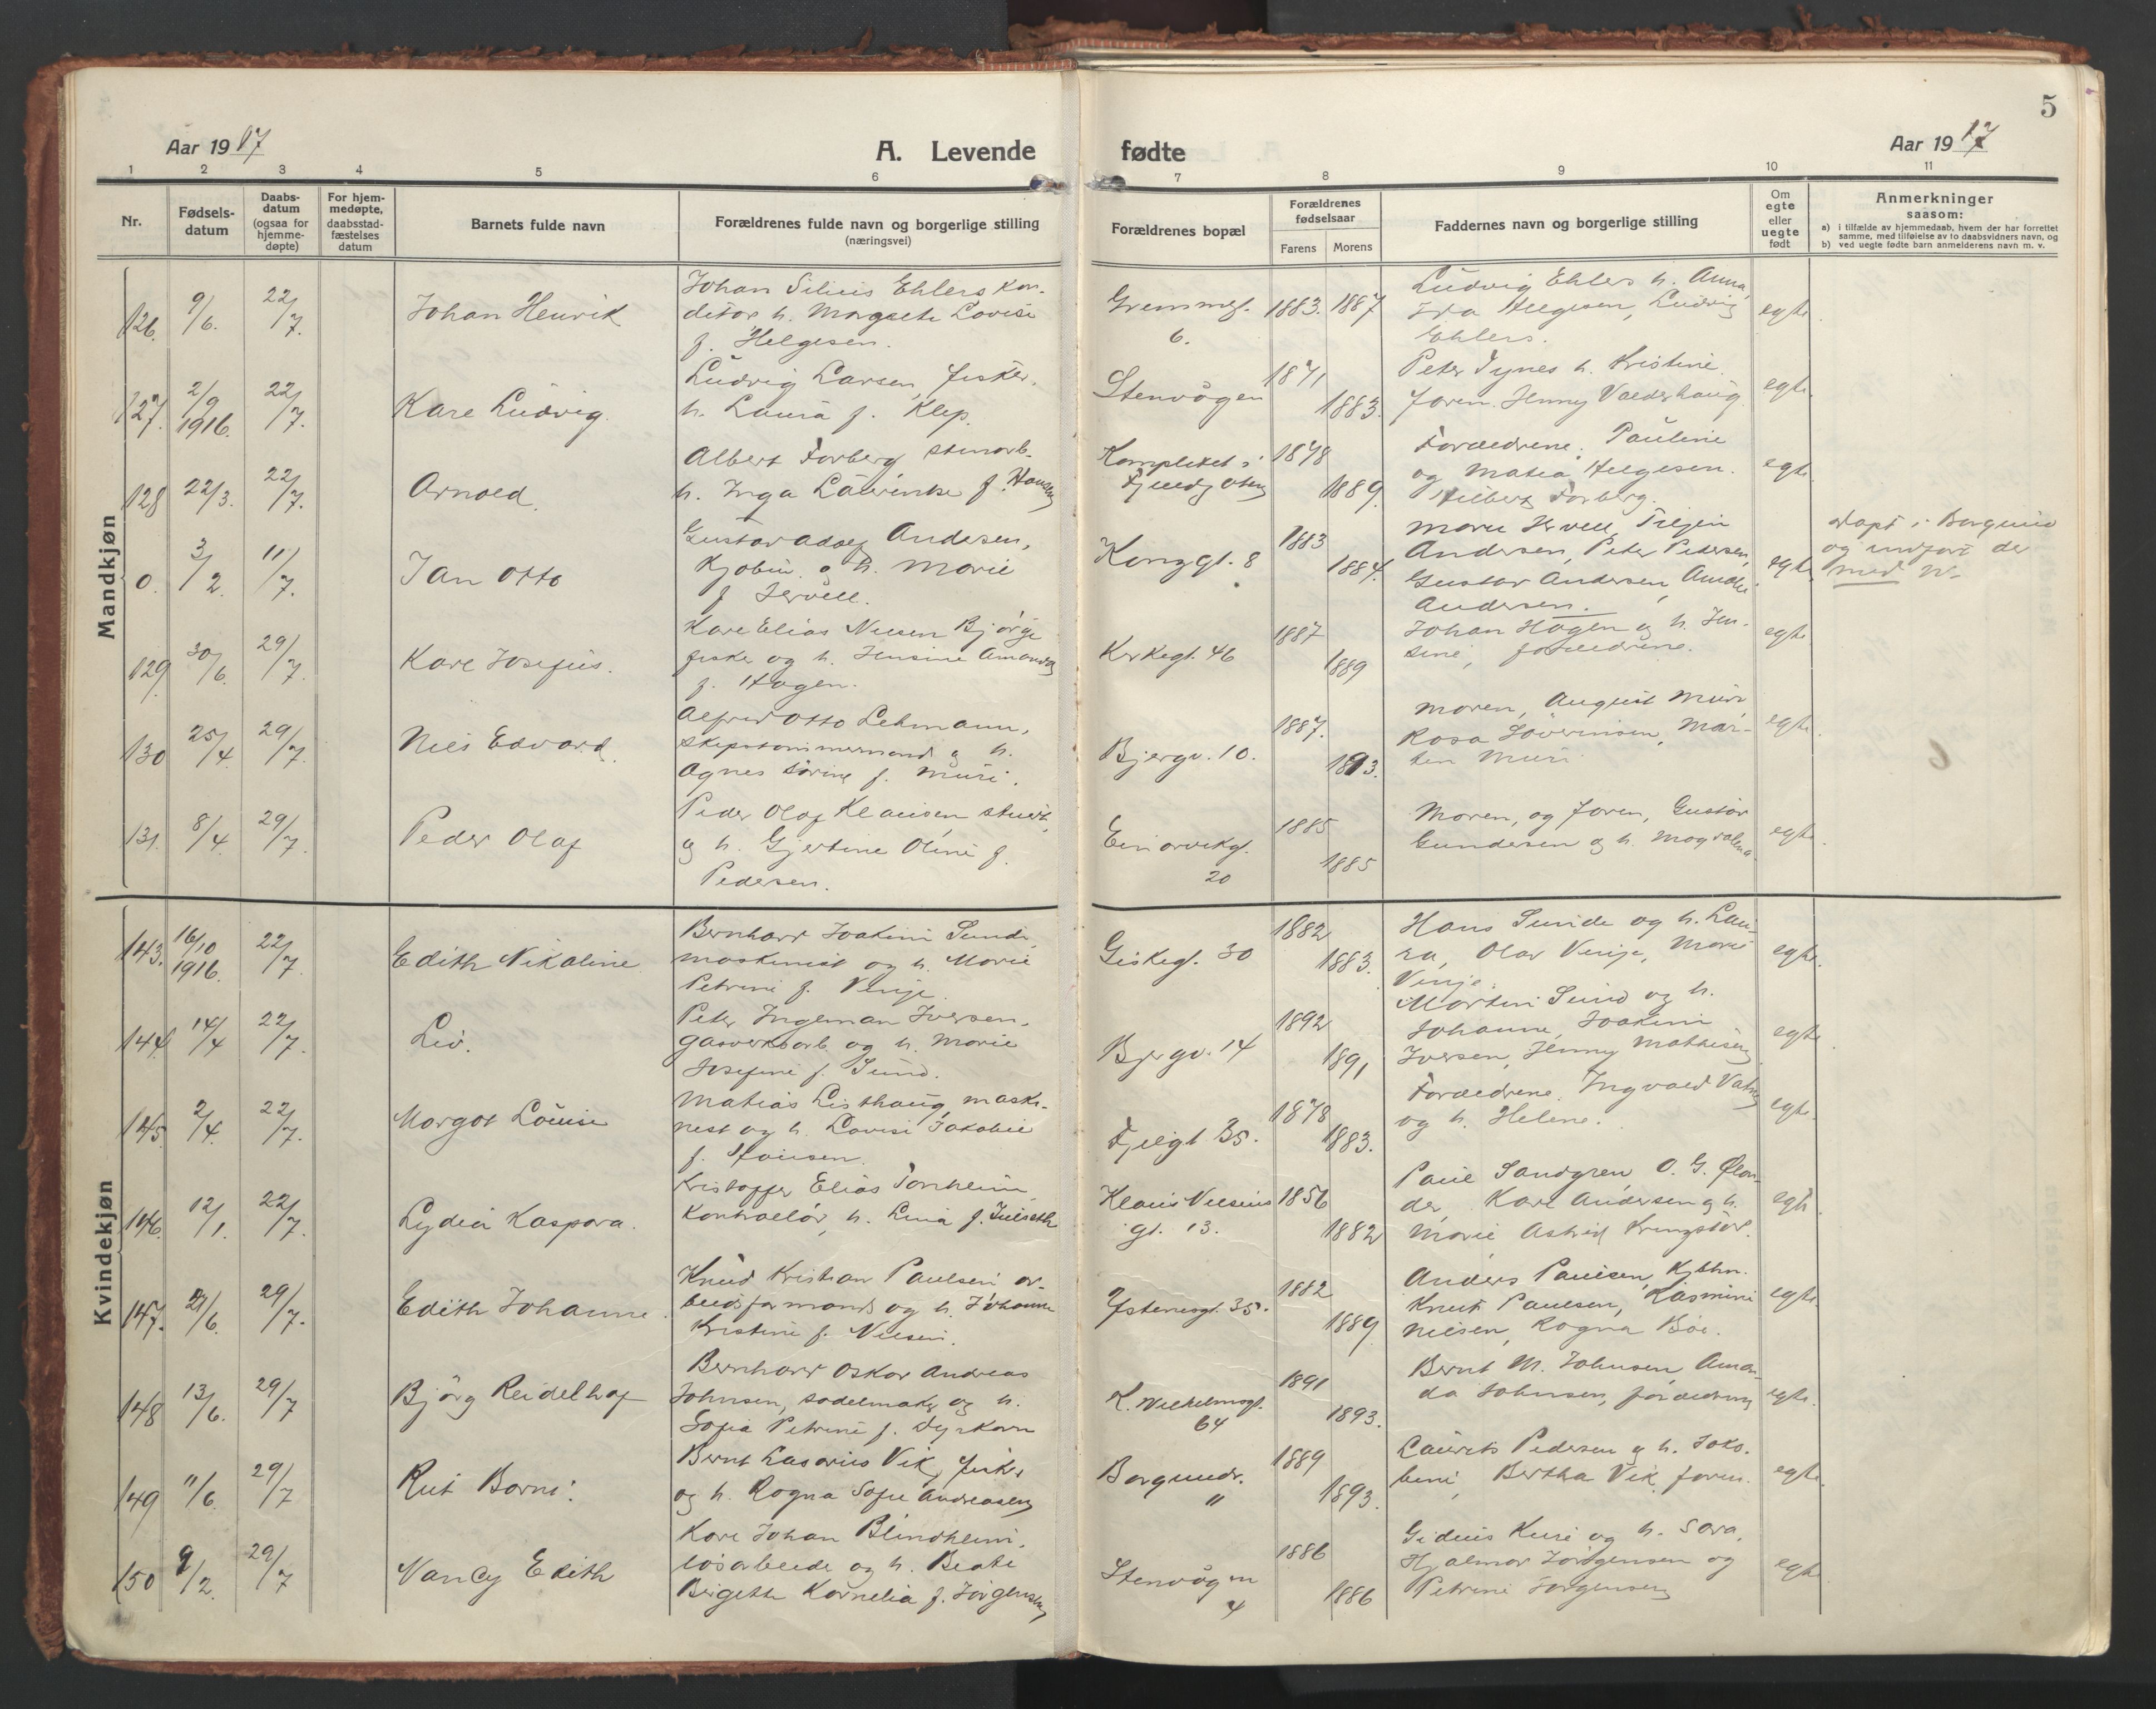 5
Aar 1917
A. Levende
1
2
3
4
5
6
Nr.
Fødsels-
datum
Daabs-
datum
(ogsaa for
hjemme-
døpte)
For hjem-
medøpte,
daabsstad-
fæstelses
datum
Barnets fulde navn
Forældrenes fulde navn og borgerlige stilling
(næringsvei)
fødte
Aar 1917
7
8
9
10
11
Forældrenes bopæl
Forældrenes
fødselsaar
Farens
Morens
Faddernes navn og borgerlige stilling
Om
egte
eller
uegte
født
Anmerkninger
saasom:
a) i tilfælde av hjemmedaab, hvem der har forrettet
samme, med tilføielse av to daabsvidners navn, og
b) ved uegte fødte barn anmelderens navn m. v.
Mandkjøn
126. 9/6. 22/7. Johan Henrik
Johan Ehlers kon-
ditor h. Margrete Lovise
f. Helgesen.
6. 1883. 1887
Ludvig Ehlers h. Anna,
Helgesen, Ludvig
Ehlers.
egte.
127. 2/9 1916. 22/7. Kare Ludvig.
Ludvig Larsen, fisker,
h. Laura f. Klep.
Stenvågen 1871 1883.
Peter Tynes h. Kristine.
faren. Jenny Valderhaug.
egte.
128 22/3. 22/7. Arnold.
Albert Forberg, stenarb.
h. Inga f. Hansen
1878 1889.
Forældrene, Pauline
og Matea Helgesen.
Forberg.
egte.
0. 3/2. 11/7. Jan Otto
Gustav Adolf Andersen,
Kjøbm. og h. Marie
f. Jervell.
Kongsgt. 8 1883 1884.
Marie Jervell,
Andersen, Peter Pedersen,
Gustav Andersen,
Andersen.
egte.
døpt i Borgund
og indført der
med Nr.
129. 30/6. 29/7. Kare Josefus.
Kare Elias Nilsen Bjørge
fisker og h. Jensine Amanda
f. Hagen.
Kirkegt. 46 1887 1889
Johan Hagen og h. Jen-
sine, forældrene.
egte.
130 25/4. 29/7. Nils Edvard.
Alfred Otto Lehmann,
skipstømmermand og h.
Agnes f. Muri.
Bjergv. 10. 1887. 1893.
Moren, August Muri
Rosa Søverinsen, Mar-
ten Muri
egte.
131. 8/4. 29/7. Peder Olaf
Peder Olaf Klausen
og h. Gjertine Oline f.
Pedersen.
20 1885 1885
Moren, og faren, Gustav
Gundersen og h. Magdalena.
egte.
Kvindekjøn
143. 16/10 1916. 22/7. Edith Nikoline
Bernhard Joakim Sunde,
maskinist og h. Marie
Petrine f. Vinje.
Giskegt. 30 1882 1883.
Hans Sunde og h. Lau-
ra, Olav Vinje, Marie
Vinje.
egte.
144. 14/4 22/7. Liv.
Peter Ingeman Iversen,
gasverksarb. og h. Marie
Josefine f. Sund.
Bjergv. 14 1892 1891
Martin Sund og h.
Johanne, Joakim
Iversen, Jenny Mathisen
egte.
145 2/4. 22/7. Margot Louise
Matias Listhaug, maski-
nist og h. Lovise Jakobine
f.
Fjellgt 35. 1878 1883.
Forældrene. Ingvald
og h. Helene.
egte.
146. 12/1. 22/7. Lydia Kaspara.
Kristoffer Elias Tonheim,
Kontrollør, h. Lina f. Julseth
Klaus Nilsens
gt. 13. 1856 1882
Paul Sandgren, O. G. Ølan-
der, Kare Andersen og h.
Marie, Astrid
egte.
147. 21/6. 29/7. Edith Johanne.
Knud Kristian Paulsen ar-
beidsformand og h. Johanne
Kristine f. Nilsen.
Ystenesgt. 35. 1882 1889
Anders Paulsen, Kjbhn.
Knut Paulsen, Rasmine
Nilsen, Ragna Bøe.
egte.
148 13/6. 29/7 Bjørg
Bernhard Oskar Andreas
Johnsen, sadelmaker og h.
Sofia Petrine f. Dyrkorn
K. Wilhelmsgt.
64 1891 1893.
Bernt M. Johnsen, Aman-
da Johnsen, forældrene
egte.
149 11/6. 29/7 Rut Borni.
Bernt Lasarius Vik, fisker
og h. Ragna Sofie Andreasen
Borgundv.
11 1889 1893.
Laurits Pedersen og h. Jako-
bine, Bertha Vik, faren.
egte.
150 9/2. 29/7 Nancy Edith
Kare Johan Blindheim,
løsarbeider og h. Beate
Birgethe Kornelia f. Jørgensen
Stenvågen
4 1886 1886
h. Sara,
Hjalmar Jørgensen og
Petrine Jørgensen
egte.